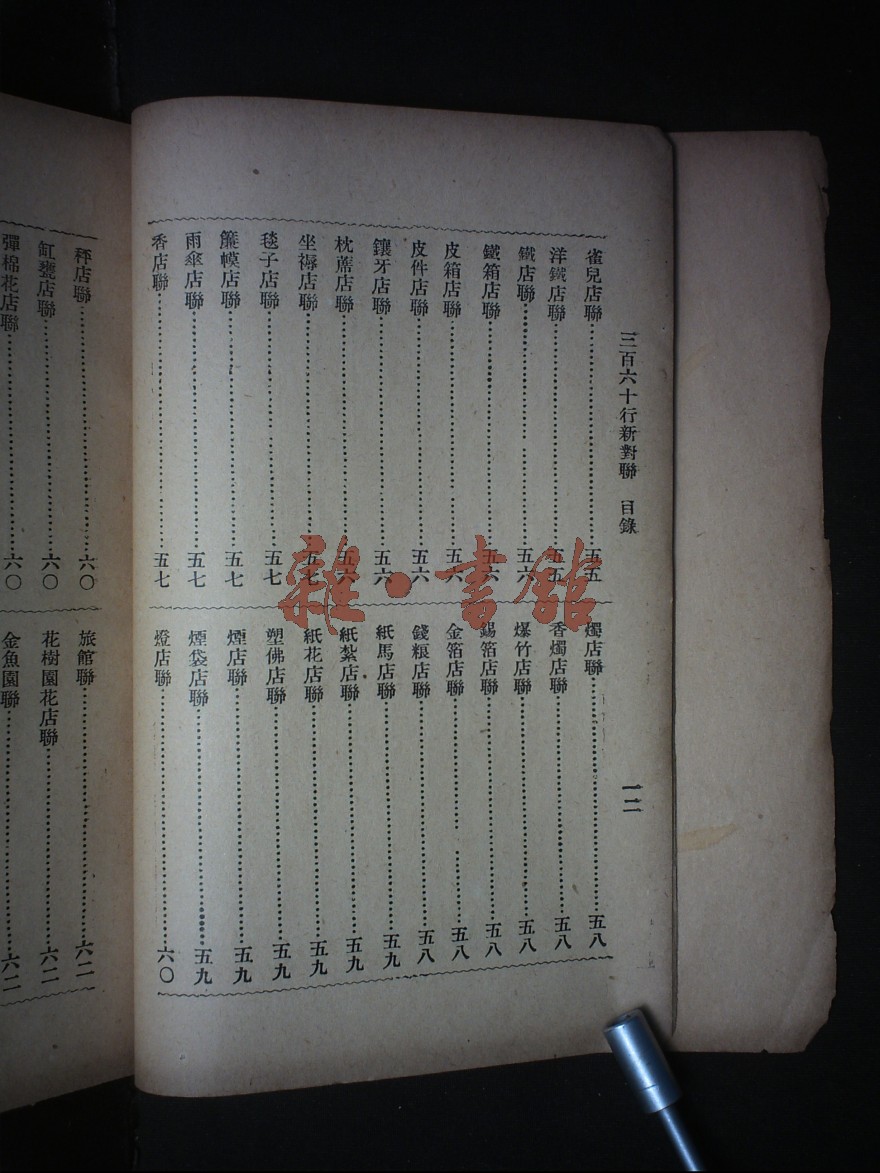 三百六十行新對聯　目錄
一二
雀兒店聯……五五
洋鐵店聯……五五
鐵店聯……五六
鐵箱店聯……五六
皮箱店聯……五六
皮件店聯……五六
鑲牙店聯……五六
枕蓆店聯……五六
坐褥店聯……五七
毯子店聯……五七
簾幙店聯……五七
雨傘店聯……五七
香店聯……五七
燭店聯……五八
香燭店聯……五八
爆竹店聯……五八
錫箔店聯……五八
金箔店聯……五八
錢粻店聯……五八
紙馬店聯……五九
紙紮店聯……五九
紙花店聯……五九
塑佛店聯……五九
煙店聯……五九
煙袋店聯……五九
燈店聯……六〇
秤店聯……六〇
缸甕店聯……六〇
彈棉花店聯……六〇
旅館聯……六二
花樹園花店聯……六二
金魚園聯……六二
雜·書館